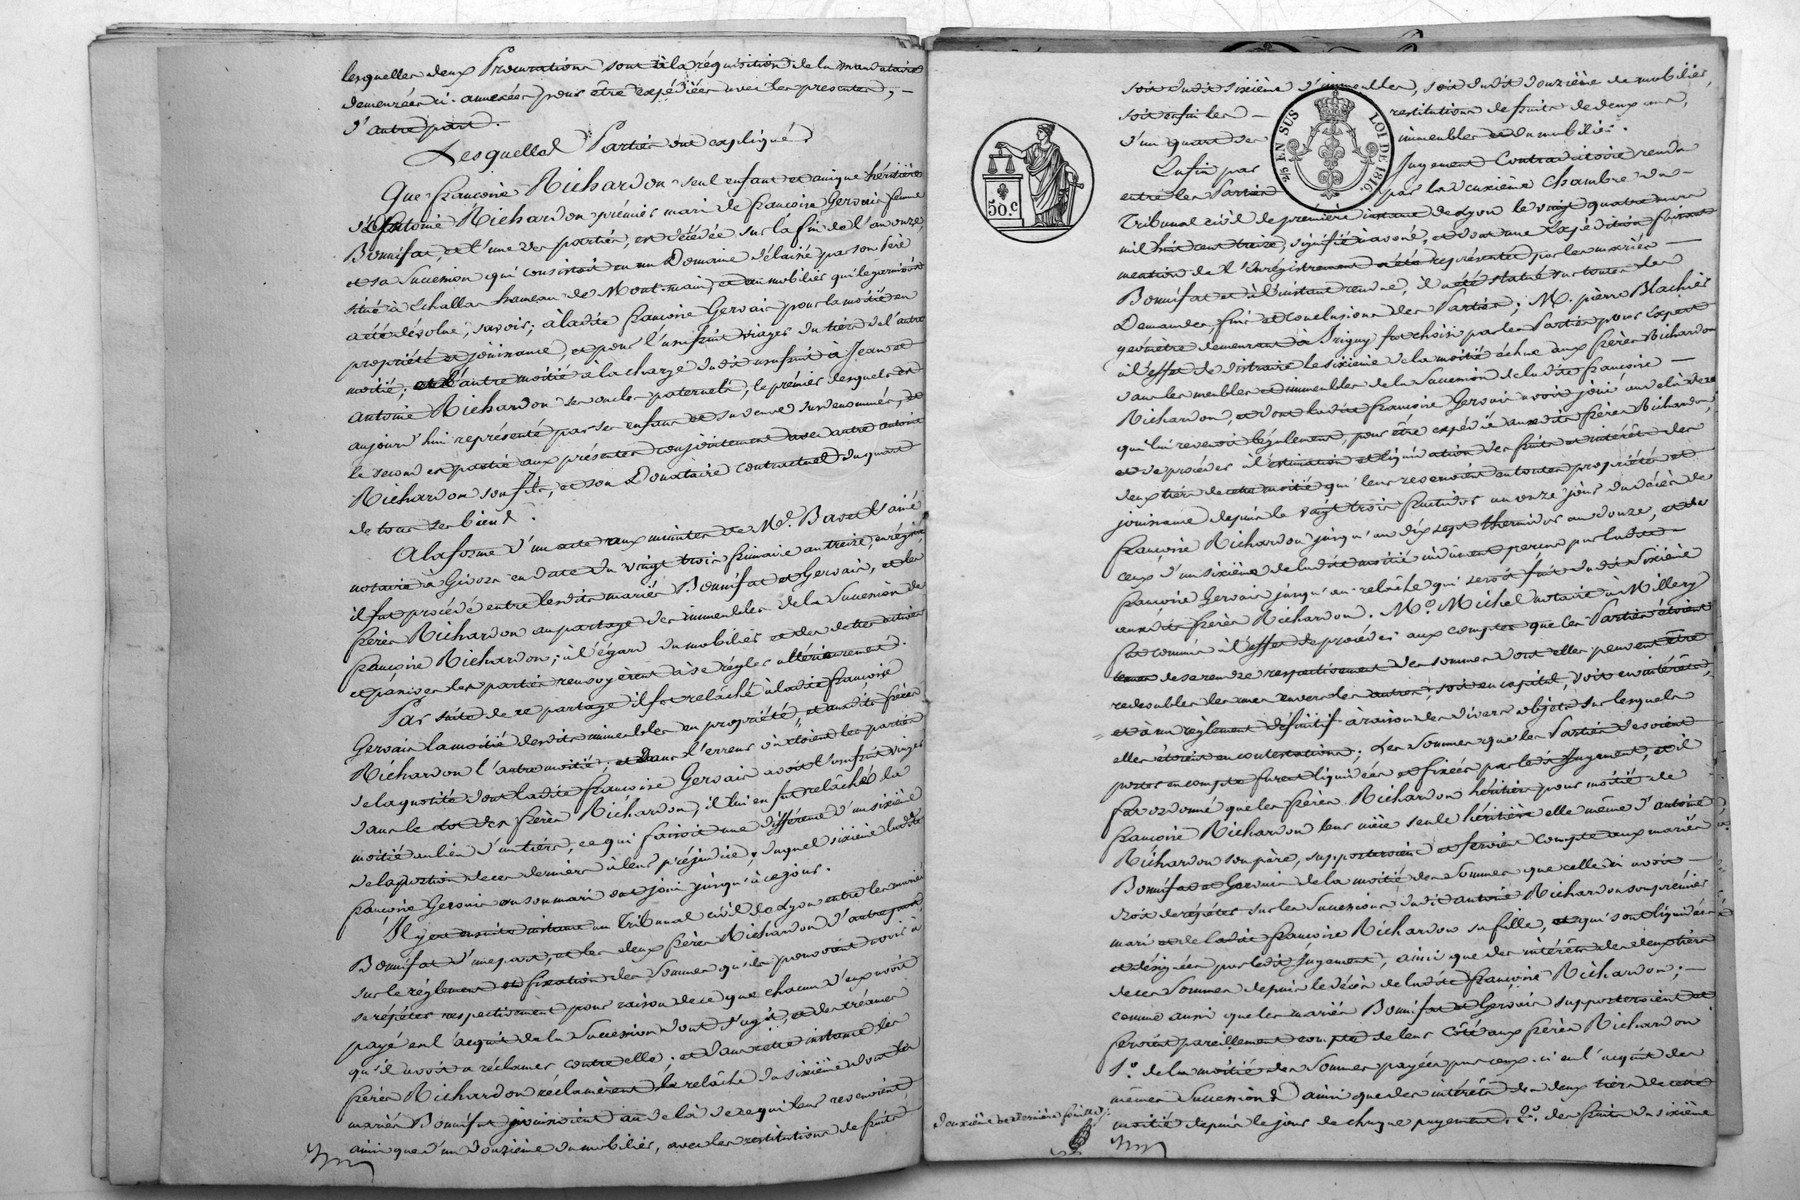 lesquelles deux Procurations sont à la réquisition de la mandataire
demeurées ci-annexées pour être expédiées avec les présentes, —
d'autre part.
Lesquelles Parties ont expliqué
Que françoise Richardon seul enfant et unique héritière
d'Antoine Richardon premier mari de françoise Gervais femme
Bonnifat, et l'une des parties, est décédée sur la fin de l'an onze,
et sa Succession qui consistoit en un Domaine délaissé par son père
situé à Échallas hameau de Mont-main, et en mobilier qui le garnissoit
a été dévolue, savoir; à ladite françoise Gervais pour la moitié en
propriété et jouissance, et pour l'usufruit viager du tiers de l'autre
moitié; et l'autre moitié à la charge dudit usufruit à Jean et
antoine Richardon ses oncles paternels, le premier desquels est
aujourd'hui représenté par ses enfans et sa veuve surnommés, et
le second est partie aux présentes conjointement avec autre antoine
Richardon son fils, et son Donataire contractuel du quart
de tous ses biens.
A la forme d'un acte aux minutes de Me. Basset l'ainé
notaire à Givors en date du vingt trois frimaire an treize, enrégistré,
il fut procédé entre lesdits mariés Bonnifat et Gervais, et les
frères Richardon au partage des immeubles de la Succession de
françoise Richardon; à l'égard du mobilier et des dettes actives
et passives les parties renvoyèrent à se régler ultérieurement.
Par suite de ce partage il fut relâché à ladite françoise
Gervais la moitié desdits immeubles en propriété, et auxdits frères
Richardon l'autre moitié; et dans l'erreur où étoient les parties
de la quotité dont ladite françoise Gervais avoit l'usufruit viager
dans le lot des frères Richardon, il lui en fut relâché la
moitié au lieu d'un tiers, ce qui faisoit une différence d'un sixième
de la portion de ces derniers à leur préjudice, duquel sixième ladite
françoise Gervais ou son mari ont joui jusqu'à ce jour.
Il y eut ensuite instance au Tribunal civil de Lyon entre les mariés
Bonnifat d'une part, et les deux frères Richardon d'autre part
sur le réglement et fixation des Sommes qu'ils pouvoient avoir à
se répéter respectivement pour raison de ce que chacun d'eux avoit
payé en l'acquit de la Succession dont s'agit, et des créances
qu'il avoit à réclamer contre elle; et dans cette instance les
frères Richardon réclamèrent le relâche du sixième dont les
mariés Bonnifat jouissoient au delà de ce qui leur revenoient
ainsi que d'un douzième du mobilier, avec les restitutions de fruits,
soit dudit sixième d'immeubles, soit dudit douzième de mobilier,
soit enfin les — restitutions de fruits de deux ans,
d'un quart des immeubles et du mobilier.
Enfin par Jugement Contradictoire rendu
entre les Parties par la deuxième Chambre du —
Tribunal civil de première instance de Lyon le vingt quatre mars
mil huit cent treize, signifié à avoué, et dont une Expédition faisant
mention de l'Enrégistrement a été représentée par les mariés —
Bonnifat et à l'instant rendue, il a été statué sur toutes les
Demandes fins et conclusions des Parties; M. pierre Blachier
géomètre demeurant à Irigny fut choisi par les Parties pour Expert
à l'effet de distraire le sixième de la moitié échue aux frères Richardon
dans les meubles et immeubles de la Succession de ladite françoise —
Richardon, et dont ladite françoise Gervais avoit joui au delà de ce
qui lui revenoit légalement, pour être expédié auxdits frères Richardon,
et de procéder à l'estimation et liquidation des fruits et intérêts des
deux tiers de cette moitié qui leur revenoient en toute propriété et
jouissance depuis le vingt trois fructidor an onze jour du décès de
françoise Richardon jusqu'au dix sept thermidor an douze, et de
ceux d'un sixième de ladite moitié indument perçus par ladite
françoise Gervais jusqu'au relâche qui seroit fait dudit Sixième
auxdits frères Richardon. Me. Michel notaire à Millery
fut commis à l'effet de procéder aux comptes que les Parties étoient
tenues de se rendre respectivement des sommes dont elles peuvent être
redevables les unes envers les autres, soit en capital, soit en intérêts,
et à un règlement définitif à raison des divers objets sur lesquels
elles étoient en contestations; Les Sommes que les Parties devoient
porter en compte furent liquidées et fixées par ledit Jugement, et il
fut ordonné que les frères Richardon héritiers pour moitié de
françoise Richardon leur nièce seule héritière elle même d'antoine
Richardon son père, supporteroient et feroient compte aux mariés
Bonnifat et Gervais de la moitié des Sommes que celle ci avoit —
droit de répéter sur les Successions dudit antoine Richardon son premier
mari et de ladite françoise Richardon sa fille, et qui sont liquidées
et désignées par ledit Jugement, ainsi que des intérêts des deux tiers
de ces Sommes depuis le décès de ladite françoise Richardon; —
comme aussi que les mariés Bonnifat et Gervais supporteroient et
feroient pareillement compte de leur côté aux frères Richardon
1°. de la moitié des Sommes payées par eux-ci en l'acquit des
mêmes Successions ainsi que des intérêts des deux tiers de cette
moitié depuis le jour de chaque payement. 2°. des fruits du sixième
deuxième et dernière feuille
50.c
25 EN SUS
LOI DE 1816.